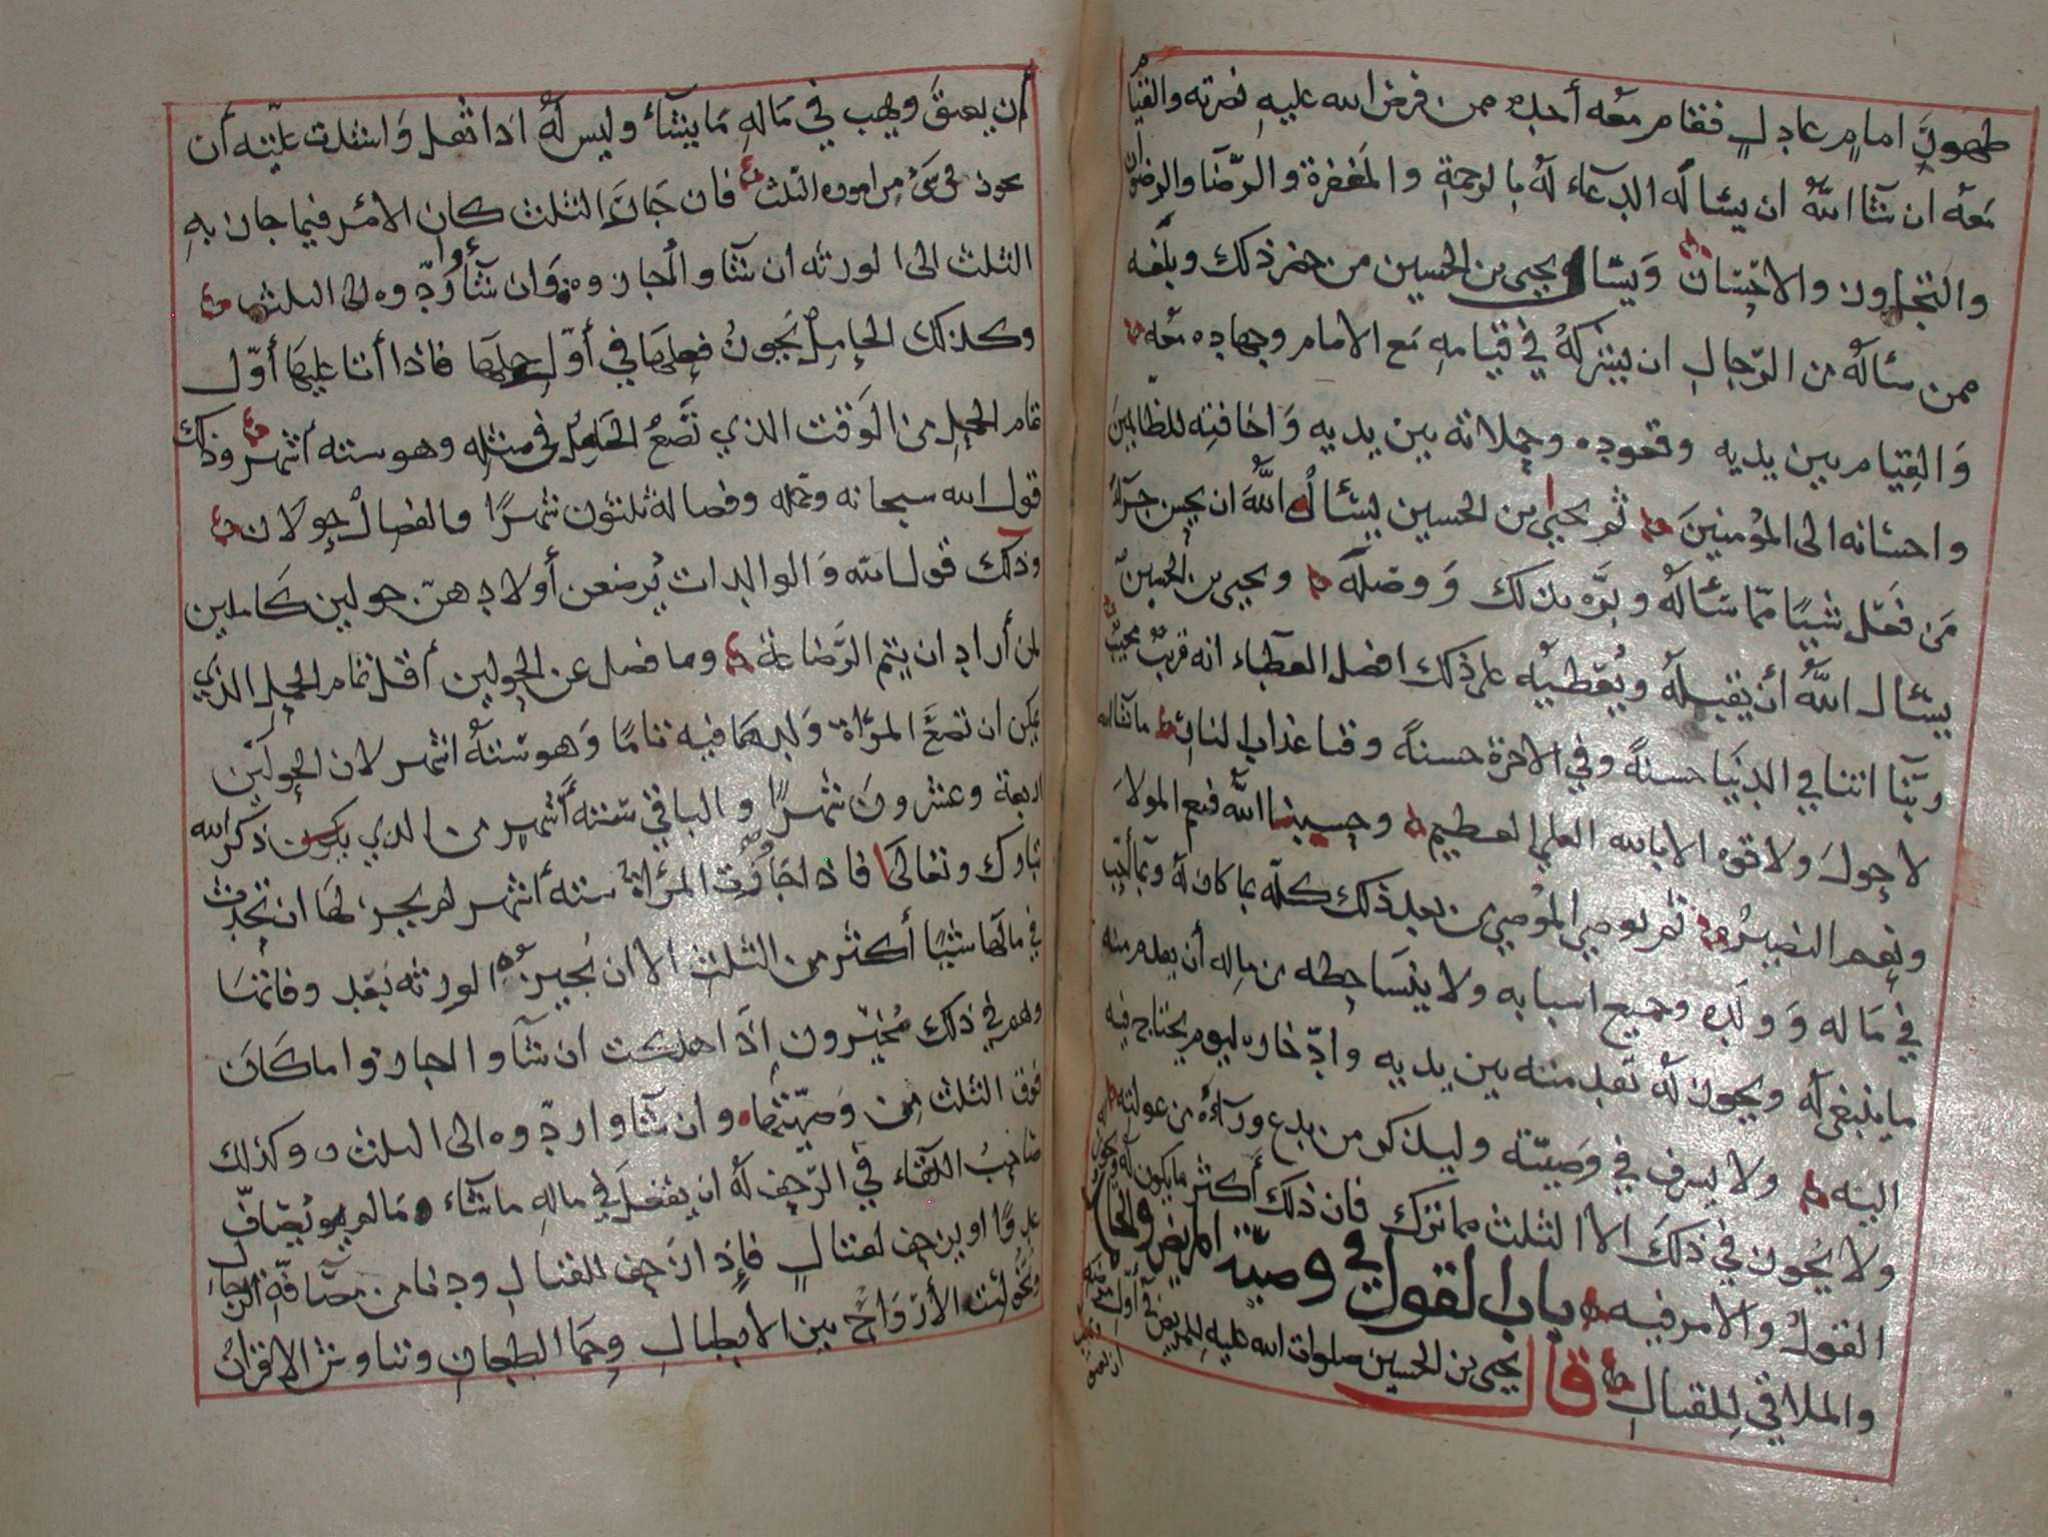 ظهور امام عادل فقام معه أحد ممن فرض الله عليه نصرته والقيام
معه ان شا الله ان يساله الدعاء له بالرحمة والمغفرة والرضا والرضوان
والتجاوز والاحسان ويسال يحيى بن الحسين من حضر ذلك وبلغه
ممن ساله من الرجال ان يشركه في قيامه مع الامام وجهاده معه
والقيام بين يديه وقعوده وحملاته بين يديه واخافته للظالمين
واحسانه الى المؤمنين ثم يحيى بن الحسين يسال الله ان يحسن جزآء
من فعل شيا مما ساله وبره بذلك ووصله ويحيى بن الحسين
يسال الله أن يقبله ويعطيه على ذلك افضل العطاء انه قريب مجيب
ربنا اتنا في الدنيا حسنة وفي الاخرة حسنة وقنا عذاب النار ما شا الله
لا حول ولا قوه الا بالله العلي العظيم وحسبنا الله فنعم المولا
ونعم النصير ثم يوصي الموصي من بعد ذلك كله بما كان له وبما أحب
في ماله وولده وجميع اسبابه ولا ينسا حظه من ماله أن يقدم منه
ما ينبغي له ويجوز له بعد منه بين يديه وادخاره ليوم يحتاج فيه
اليه ولا يسرف في وصيته وليذكر من يدع ورآءه من عولته
ولا يجوز في ذلك الا الثلث مما ترك فان ذلك أكثر ما يكون له ويجوز
القول والامر فيه باب القول في وصية المريض والحامل
والملاقي للقتال قال يحيى بن الحسين صلوات الله عليه للمريض في أول مرضه
ان يعتق ويهب في ماله ما يشآء وليس له اذا ثقل واشتدت علته أن
يجوز في شيء من اموره الثلث فان جاز الثلث كان الامر فيما جاز به
الثلث الى الورثه ان شآوا أجازوه وان شآوا ردوه الى الثلث
وكذلك الحامل يجوز فعلها في أول حملها فاذا أتا عليها أول
تمام الحمل من الوقت الذي تضع الحامل في مثله وهو سته أشهر وذلك
قول الله سبحانه وحمله وفصاله ثلثون شهرا والفصال حولان
وذلك قول الله والوالدات يرضعن أولادهن حولين كاملين
لمن أراد ان يتم الرضاعة وما فضل عن الحولين أقل تمام الحمل الذي
يمكن ان تضع المرأة ولدها فيه تاما وهو ستة اشهر لان الحولين
اربعة وعشرون شهرا والباقي ستة أشهر من الذي ذكر الله
تبارك وتعالى فاذا جاوزت المرأة ستة أشهر لم يجز لها ان تحدث
في مالها شيئا أكثر من الثلث الا ان يجيزه الورثه بعد وفاتها
وهم في ذلك مخيرون اذا هلكت ان شآوا اجازوا ما كان
فوق الثلث من وصيتها وان شآوا ردوه الى الثلث وكذلك
صاحب اللقاء في الزحف له ان يفعل في ماله ما شاء ما لم يصاف
عدوا او يزحف لقتال فإذا زحف للقتال ودنا من مصافة الرجال
وتخولست الأرواح بين الابطال وحما الطعان وتناوش الاقران